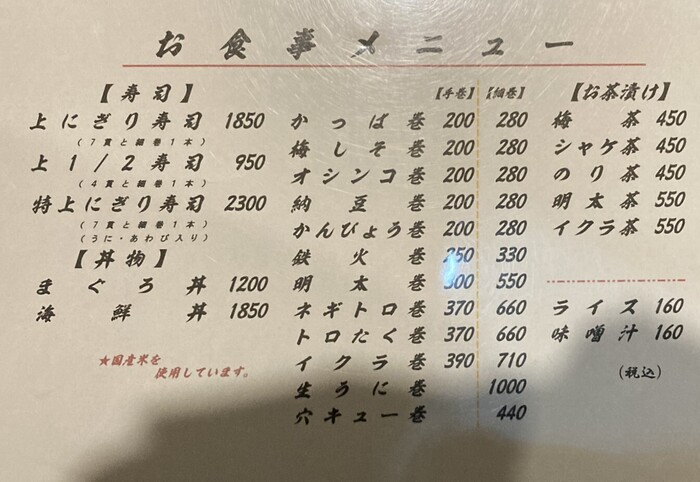 お食事メニュー
【寿司】
上にぎり寿司 1850
(7貫と細巻1本)
上1/2寿司 950
(4貫と細巻1本)
特上にぎり寿司 2300
(7貫と細巻1本)
(うに・あわび入り)
【丼物】
まぐろ丼 1200
海鮮丼 1850
★国産米を
使用しています。
【手巻】 【細巻】
かっぱ巻 200 280
梅しそ巻 200 280
オシンコ巻 200 280
納豆巻 200 280
かんぴょう巻 200 280
鉄火巻 250 330
明太巻 300 550
ネギトロ巻 370 660
トロたく巻 370 660
イクラ巻 390 710
生うに巻 1000
穴キュー巻 440
【お茶漬け】
梅茶 450
シャケ茶 450
のり茶 450
明太茶 550
イクラ茶 550
ライス 160
味噌汁 160
(税込)